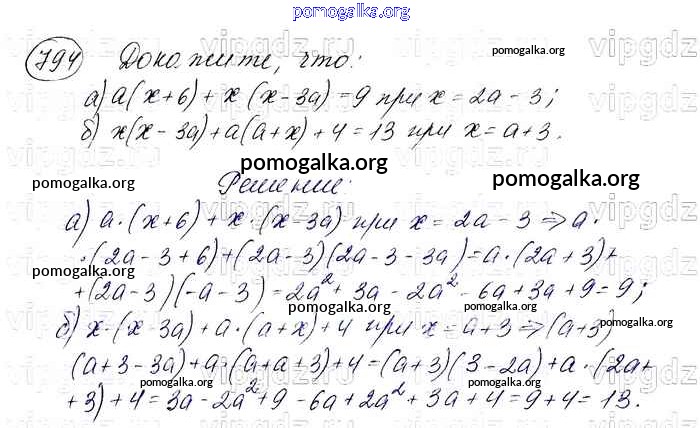 pomogalka.org
794 Докажите, что:
pomogalka.org
vipgdz
а) a(x+6) + x(x-3a) = 9 при x = 2a - 3;
б) x(x - 3a) + a(a + x) + 4 = 13 при x = a + 3.
pomogalka.org
Решение:
pomogalka.org
pomogalka.org
а) a·(x+6) + x·(x-3a) при x = 2a - 3 ⇒ a·
pomogalka.org
·(2a - 3 + 6) + (2a - 3)(2a - 3 - 3a) = a·(2a + 3) +
pomogalka.org
+ (2a - 3)(-a - 3) = 2a² + 3a - 2a² - 6a + 3a + 9 = 9;
pomogalka.org
б) x·(x - 3a) + a·(a + x) + 4 при x = a + 3 ⇒ (a + 3)·
pomogalka.org
(a + 3 - 3a) + a·(a + a + 3) + 4 = (a + 3)(3 - 2a) + a·(2a +
pomogalka.org
pomogalka.org
+ 3) + 4 = 3a - 2a² + 9 - 6a + 2a² + 3a + 4 = 9 + 4 = 13.
pomogalka.org